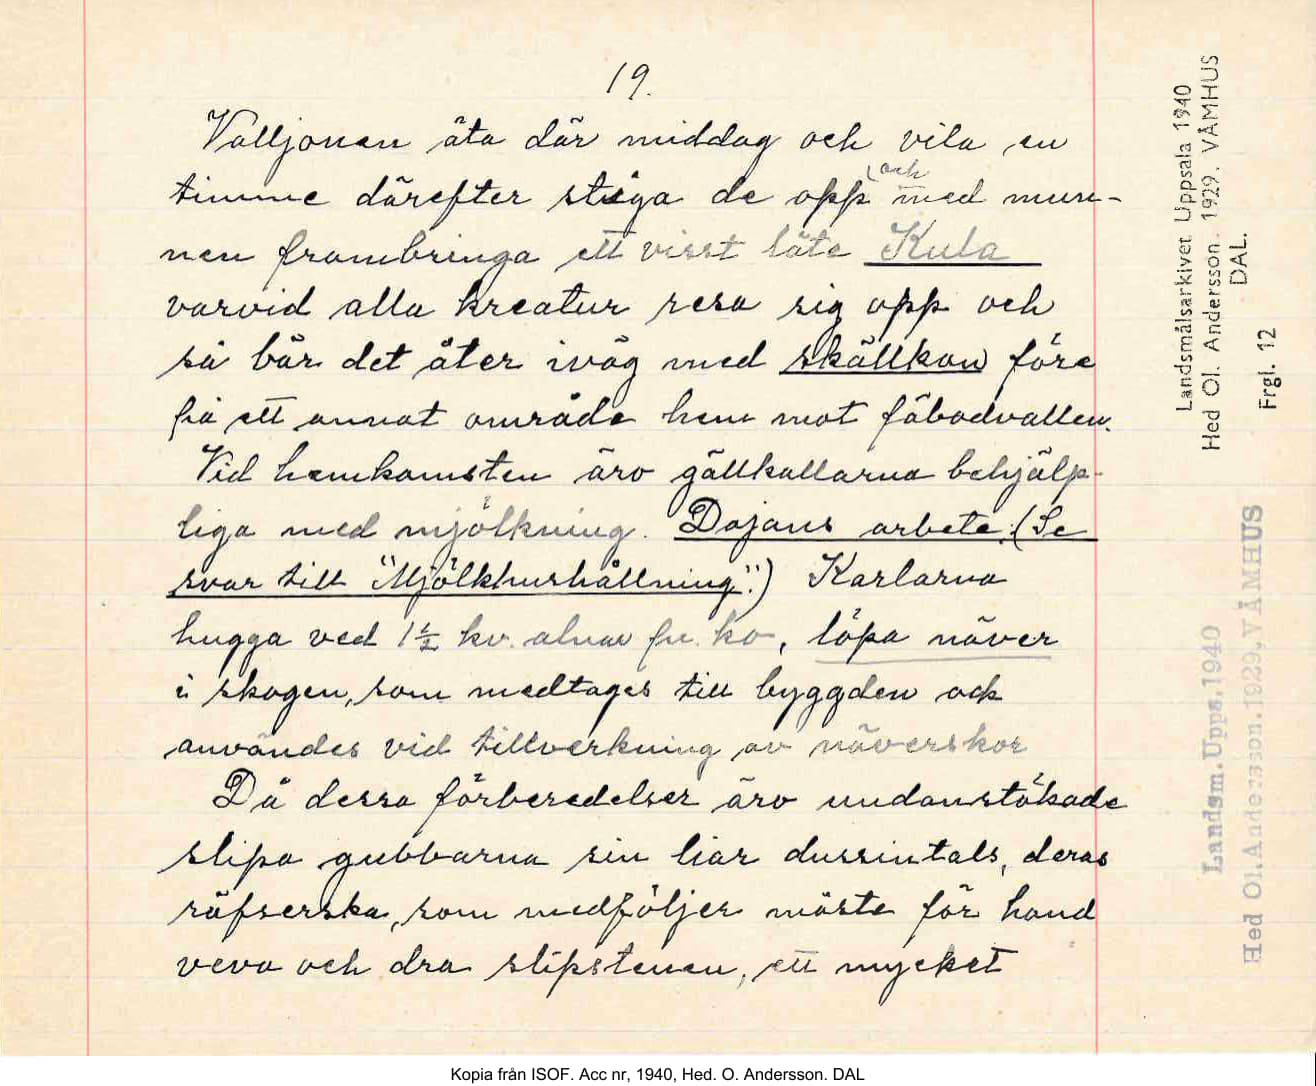 19.
Valljonen äta där middag och vila en
timme därefter stiga de opp och med mun-
nen frambringa ett visst läte Kula
varvid alla kreatur resa sig opp och
så bär det åter iväg med skällkon före
på ett annat område hem mot fäbodvallen.
Vid hemkomsten äro gällkallarna behjälp-
liga med mjölkning. Dajans arbete. (Se
svar till "Mjölkhushållning".) Karlarna
hugga ved 1½ kv. alnar pr. ko, löpa näver
i skogen, som medtages till byggden och
användes vid tillverkning av näverskor
Då dessa förberedelser äro undanstökade
slipa gubbarna sin liar dussintals, deras
räfserska, som medföljer måste för hand
veva och dra slipstenen, ett mycket
Landsmålsarkivet Uppsala 1940
Hed Ol. Andersson. 1929. VÅMHUS
DAL.
Frgl. 12
Landsm. Upps. 1940
Hed Ol. Andersson. 1929. VÅMHUS
Kopia från ISOF. Acc nr, 1940, Hed. O. Andersson. DAL